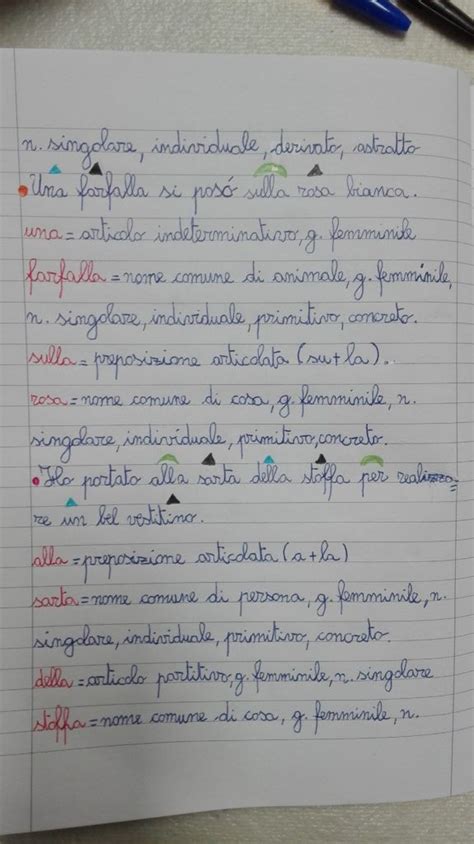 n. singolare, individuale, derivato, astratto
Una farfalla si posó sulla rosa bianca.
una = articolo indeterminativo, g. femminile
farfalla = nome comune di animale, g. femminile,
n. singolare, individuale, primitivo, concreto.
sulla = preposizione articolata (su+la).
rosa = nome comune di cosa, g. femminile, n.
singolare, individuale, primitivo, concreto.
Ho portato alla sarta della stoffa per realizza-
re un bel vestitino.
alla = preposizione articolata (a+la)
sarta = nome comune di persona, g. femminile, n.
singolare, individuale, primitivo, concreto.
della = articolo partitivo, g. femminile, n. singolare
stoffa = nome comune di cosa, g. femminile, n.